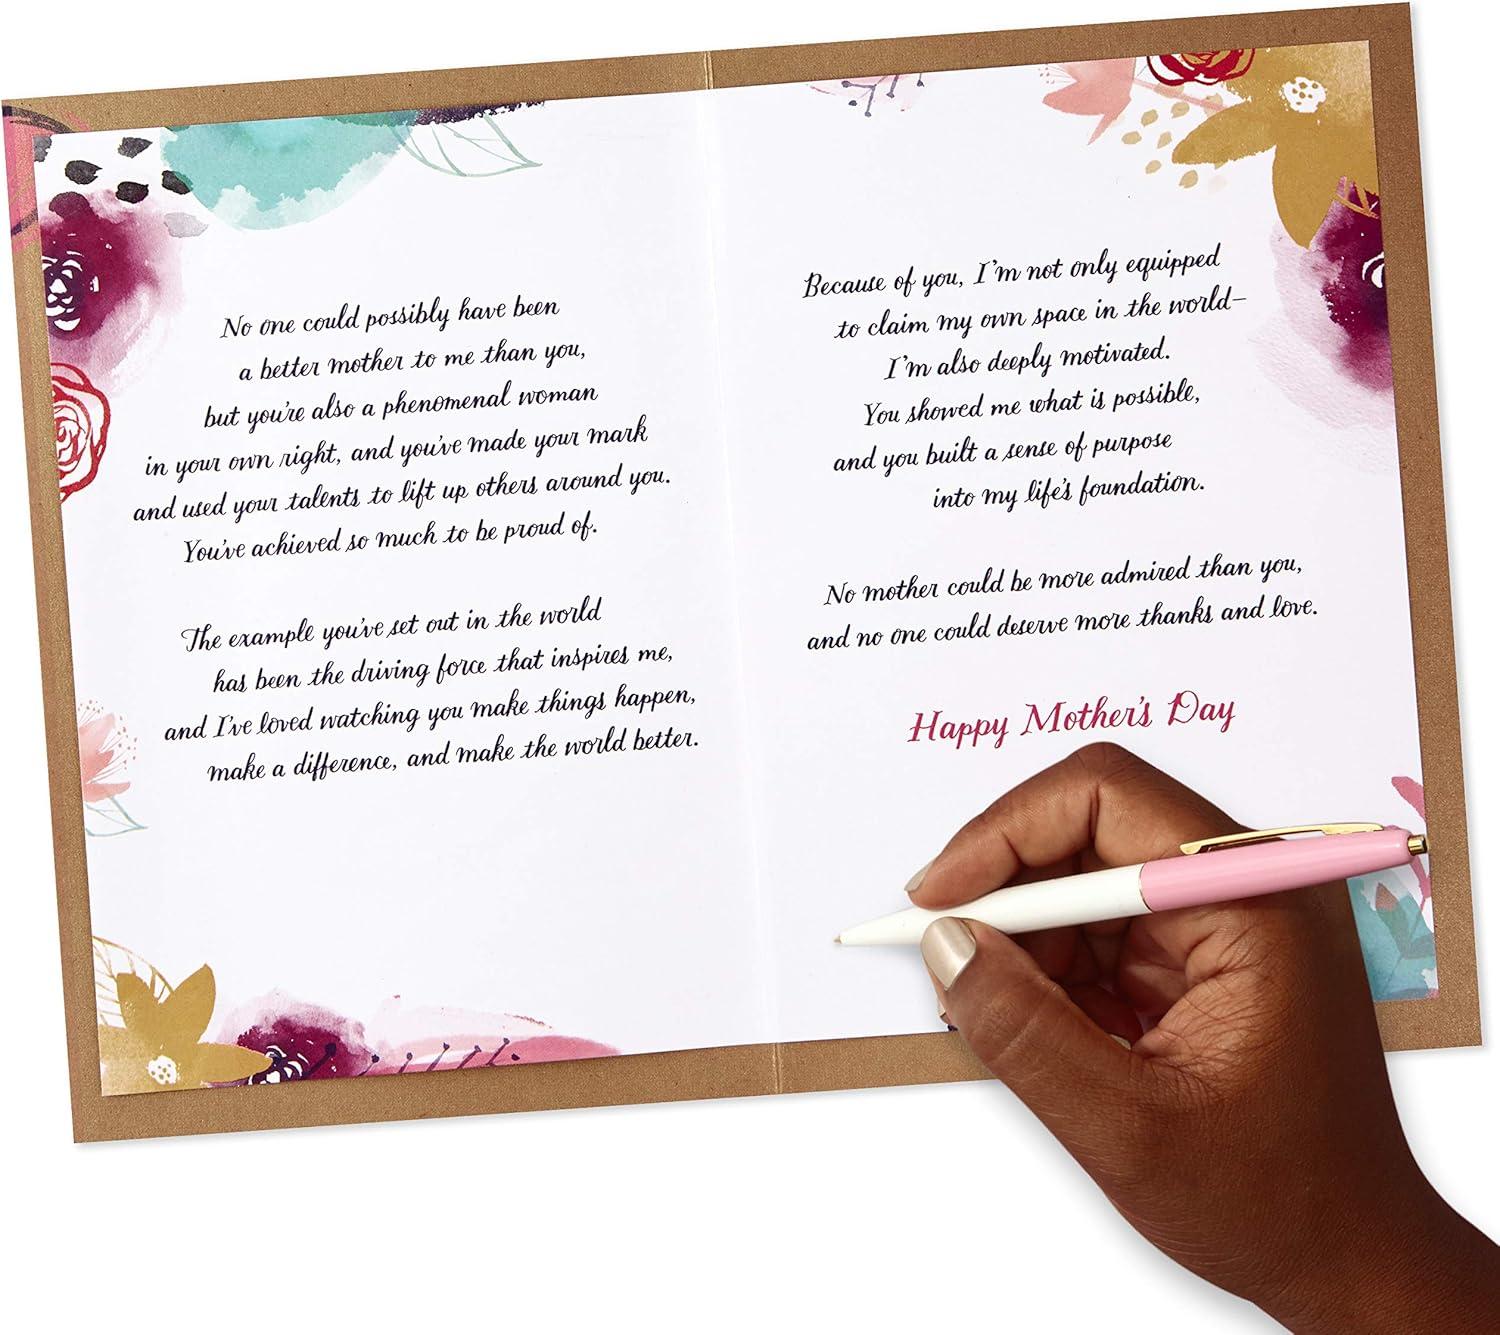 No one could possibly have been
a better mother to me than you,
but you're also a phenomenal woman
in your own right, and you've made your mark
and used your talents to lift up others around you.
You've achieved so much to be proud of.
The example you've set out in the world
has been the driving force that inspires me,
and I've loved watching you make things happen,
make a difference, and make the world better.
Because of you, I'm not only equipped
to claim my own space in the world—
I'm also deeply motivated.
You showed me what is possible,
and you built a sense of purpose
into my life's foundation.
No mother could be more admired than you,
and no one could deserve more thanks and love.
Happy Mother's Day